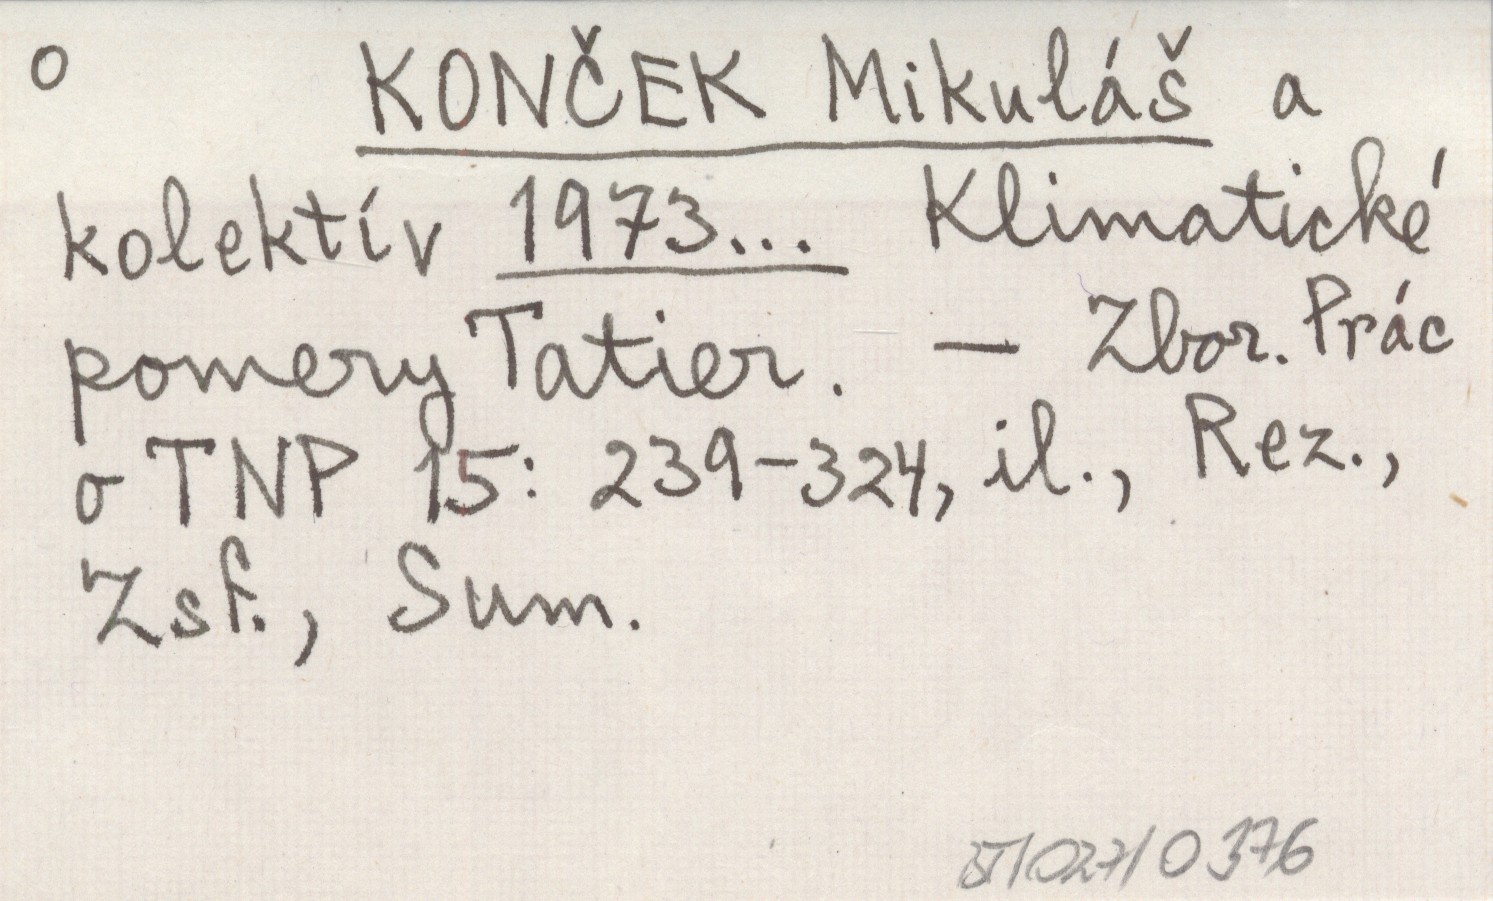 o KONČEK Mikuláš a
kolektív 1973... Klimatické
pomery Tatier. — Zbor. Prác
o TNP 15: 239-324, il., Rez.,
Zsf., Sum.
/027/0376